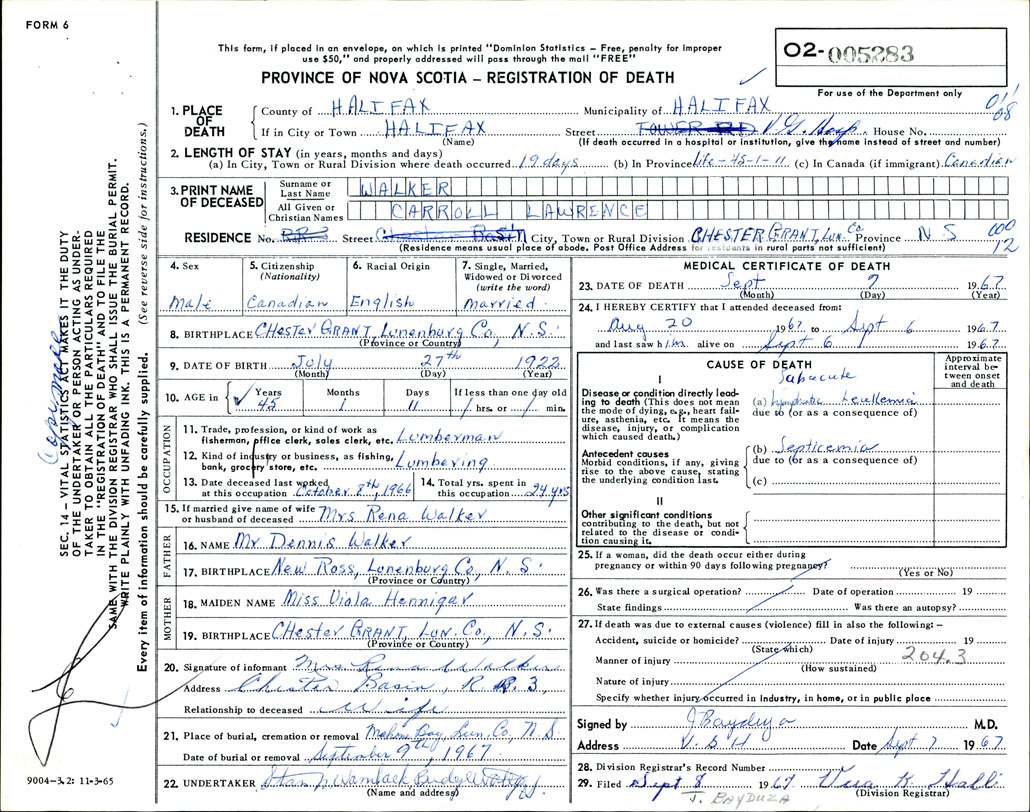 FORM 6
This form, if placed in an envelope, on which is printed "Dominion Statistics – Free, penalty for improper
use $50," and properly addressed will pass through the mail "FREE"
PROVINCE OF NOVA SCOTIA – REGISTRATION OF DEATH
02-005283
For use of the Department only
1. PLACE OF DEATH
County of HALIFAX Municipality of HALIFAX
If in City or Town HALIFAX Street TOWER RD V G Hosp House No.
(Name) (If death occurred in a hospital or institution, give the name instead of street and number)
2. LENGTH OF STAY (in years, months and days)
(a) In City, Town or Rural Division where death occurred 19 days (b) In Province life-45-1-11 (c) In Canada (if immigrant) Canadian
3. PRINT NAME OF DECEASED
Surname or Last Name WALKER
All Given or Christian Names CARROLL LAWRENCE
RESIDENCE No. RR3 Street Chester Basin City, Town or Rural Division CHESTER GRANT, Lun. Co Province N S
(Residence means usual place of abode. Post Office Address for residents in rural parts not sufficient)
12
4. Sex
Male
5. Citizenship
(Nationality)
Canadian
6. Racial Origin
English
7. Single, Married,
Widowed or Divorced
(write the word)
Married
8. BIRTHPLACE CHester GRANT, Lunenburg Co, N.S.
(Province or Country)
9. DATE OF BIRTH July 27th 1922
(Month) (Day) (Year)
10. AGE in Years Months Days If less than one day old
45 1 11 hrs. or min.
OCCUPATION
11. Trade, profession, or kind of work as
fisherman, office clerk, sales clerk, etc. Lumberman
12. Kind of industry or business, as fishing,
bank, grocery store, etc. Lumbering
13. Date deceased last worked
at this occupation October 8th, 1966
14. Total yrs. spent in
this occupation 24 yrs
15. If married give name of wife
or husband of deceased Mrs Rena Walker
FATHER
16. NAME Mr Dennis Walker
17. BIRTHPLACE New Ross, Lunenburg Co, N. S.
(Province or Country)
MOTHER
18. MAIDEN NAME Miss Viola Hennigar
19. BIRTHPLACE CHester GRANT, Lun. Co., N. S.
(Province or Country)
20. Signature of informant Mrs Rena Walker
Address Chester Basin, R. R. 3,
Relationship to deceased Wife
21. Place of burial, cremation or removal Mahone Bay, Lun. Co, N. S.
Date of burial or removal September 9th, 1967
22. UNDERTAKER
(Name and address)
MEDICAL CERTIFICATE OF DEATH
23. DATE OF DEATH Sept 7 1967
(Month) (Day) (Year)
24. I HEREBY CERTIFY that I attended deceased from:
Aug 20 1967 to Sept 6 1967
and last saw him alive on Sept 6 1967
CAUSE OF DEATH
Approximate
interval be-
tween onset
and death
I
Disease or condition directly lead-
ing to death (This does not mean
the mode of dying, e.g., heart fail-
ure, asthenia, etc. It means the
disease, injury, or complication
which caused death.)
Subacute
(a) Lymphatic Leukemia
due to (or as a consequence of)
Antecedent causes
Morbid conditions, if any, giving
rise to the above cause, stating
the underlying condition last.
(b) Septicemia
due to (or as a consequence of)
(c)
II
Other significant conditions
contributing to the death, but not
related to the disease or condi-
tion causing it.
25. If a woman, did the death occur either during
pregnancy or within 90 days following pregnancy?
(Yes or No)
26. Was there a surgical operation? Date of operation 19
State findings Was there an autopsy?
27. If death was due to external causes (violence) fill in also the following: –
Accident, suicide or homicide? Date of injury 19
(State which)
204.3
Manner of injury
(How sustained)
Nature of injury
Specify whether injury occurred in industry, in home, or in public place
Signed by J Bayduza M.D.
Address V.G.H Date Sept 7 1967
28. Division Registrar's Record Number
29. Filed Sept 8 1967
(Division Registrar)
J. BAYDUZA
SEC. 14 – VITAL STATISTICS ACT MAKES IT THE DUTY
OF THE UNDERTAKER OR PERSON ACTING AS UNDER-
TAKER TO OBTAIN ALL THE PARTICULARS REQUIRED
IN THE "REGISTRATION OF DEATH" AND TO FILE THE
SAME WITH THE DIVISION REGISTRAR WHO SHALL ISSUE THE BURIAL PERMIT.
WRITE PLAINLY WITH UNFADING INK. THIS IS A PERMANENT RECORD.
Every item of information should be carefully supplied. (See reverse side for instructions.)
9004-3.2: 11-3-65